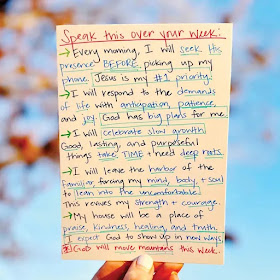 Speak this over your week:
→ Every morning, I will seek His
presence BEFORE picking up my
phone. Jesus is my #1 priority.
→ I will respond to the demands
of life with anticipation, patience,
and joy. God has big plans for me.
→ I will celebrate slow growth
Good, lasting, and purposeful
things take TIME + need deep roots.
→ I will leave the harbor of the
familiar, forcing my mind, body, + soul
to lean into the uncomfortable.
This revives my strength + courage.
→ My house will be a place of
praise, kindness, healing, and truth.
I expect God to show up in new ways.
God will move mountains this week.